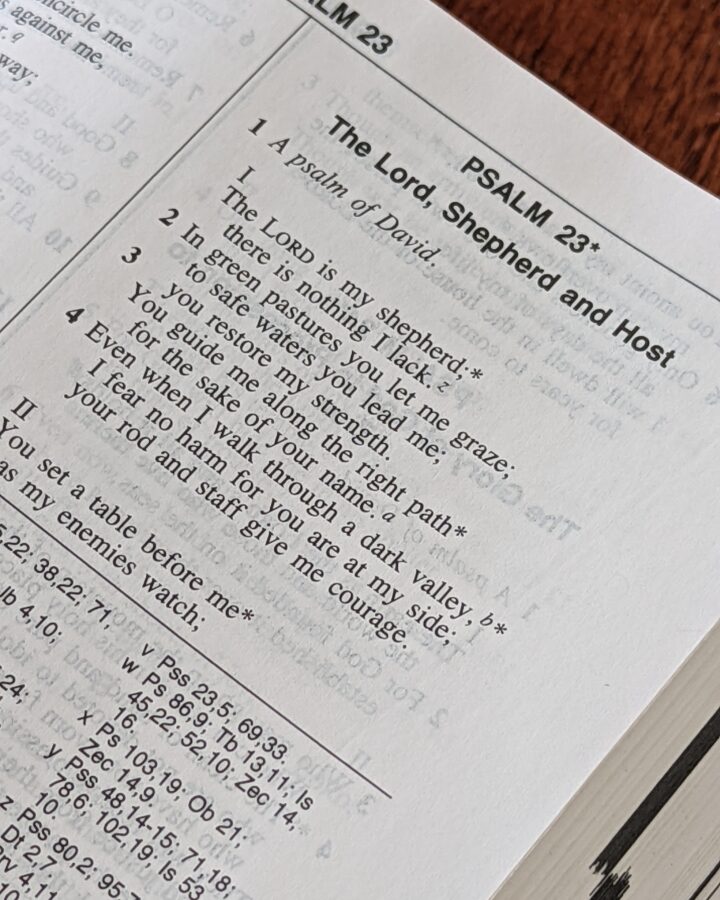 PSALM 23
ncircle me.
s against me,
r. q
way;
PSALM 23*
The Lord, Shepherd and Host
1 A psalm of David.
I
The LORD is my shepherd;*
there is nothing I lack. z
2 In green pastures you let me graze;
to safe waters you lead me;
3 you restore my strength.
You guide me along the right path*
for the sake of your name. a
4 Even when I walk through a dark valley, b*
I fear no harm for you are at my side;
your rod and staff give me courage.
II
You set a table before me*
as my enemies watch;
5,22; 38,22; 71,
Jb 4,10;
24;
v Pss 23,5; 69,33.
w Ps 86,9; Tb 13,11; Is
45,22; 52,10; Zec 14,
16.
x Ps 103,19; Ob 21;
Zec 14,9.
y Pss 48,14-15; 71,18;
78,6; 102,19; Is 53,
10.
z Pss 80,2; 95,7
Dt 2,7.
Prv 4,11
10